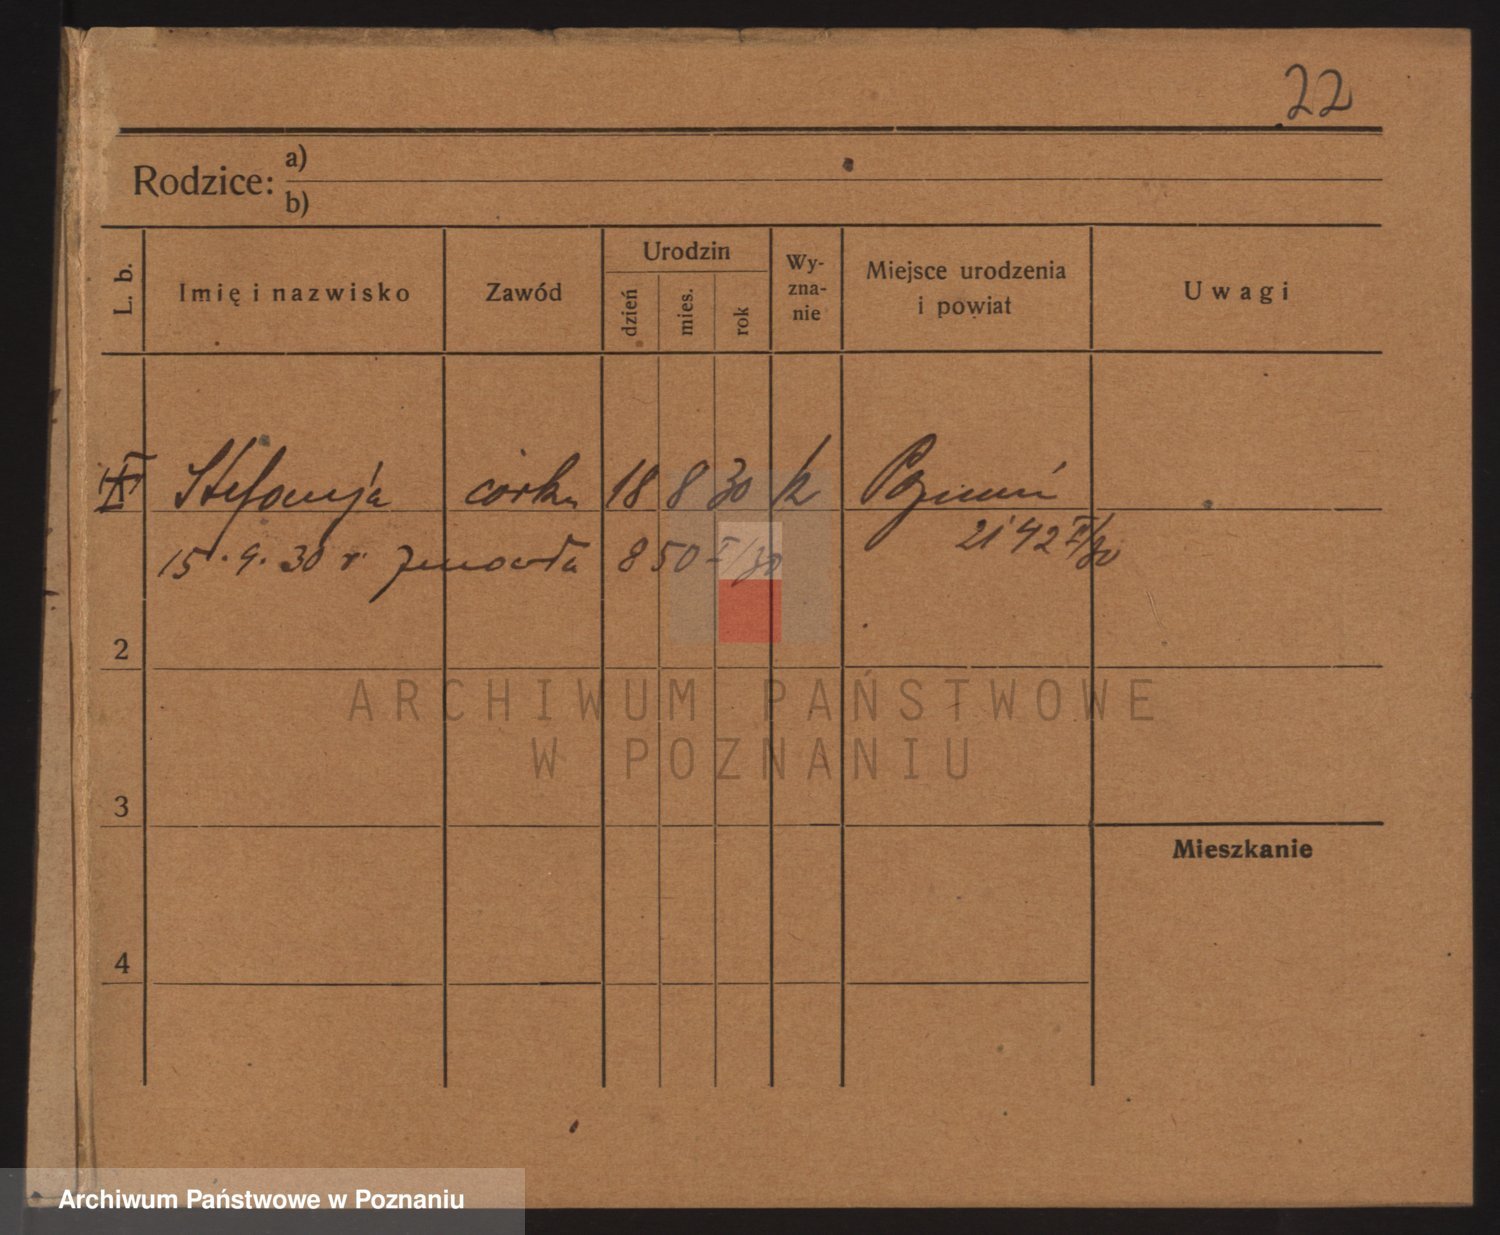 22
Rodzice: a)
b)
L. b.
Imię i nazwisko
Zawód
Urodzin
dzień
mies.
rok
Wy-
zna-
nie
Miejsce urodzenia
i powiat
Uwagi
Stefanja córka 18 8 30 k Poznań
2142 II/30
15.9.30 r zmarła 850 I/30
2
ARCHIWUM PAŃSTWOWE
W POZNANIU
3
Mieszkanie
4
Archiwum Państwowe w Poznaniu